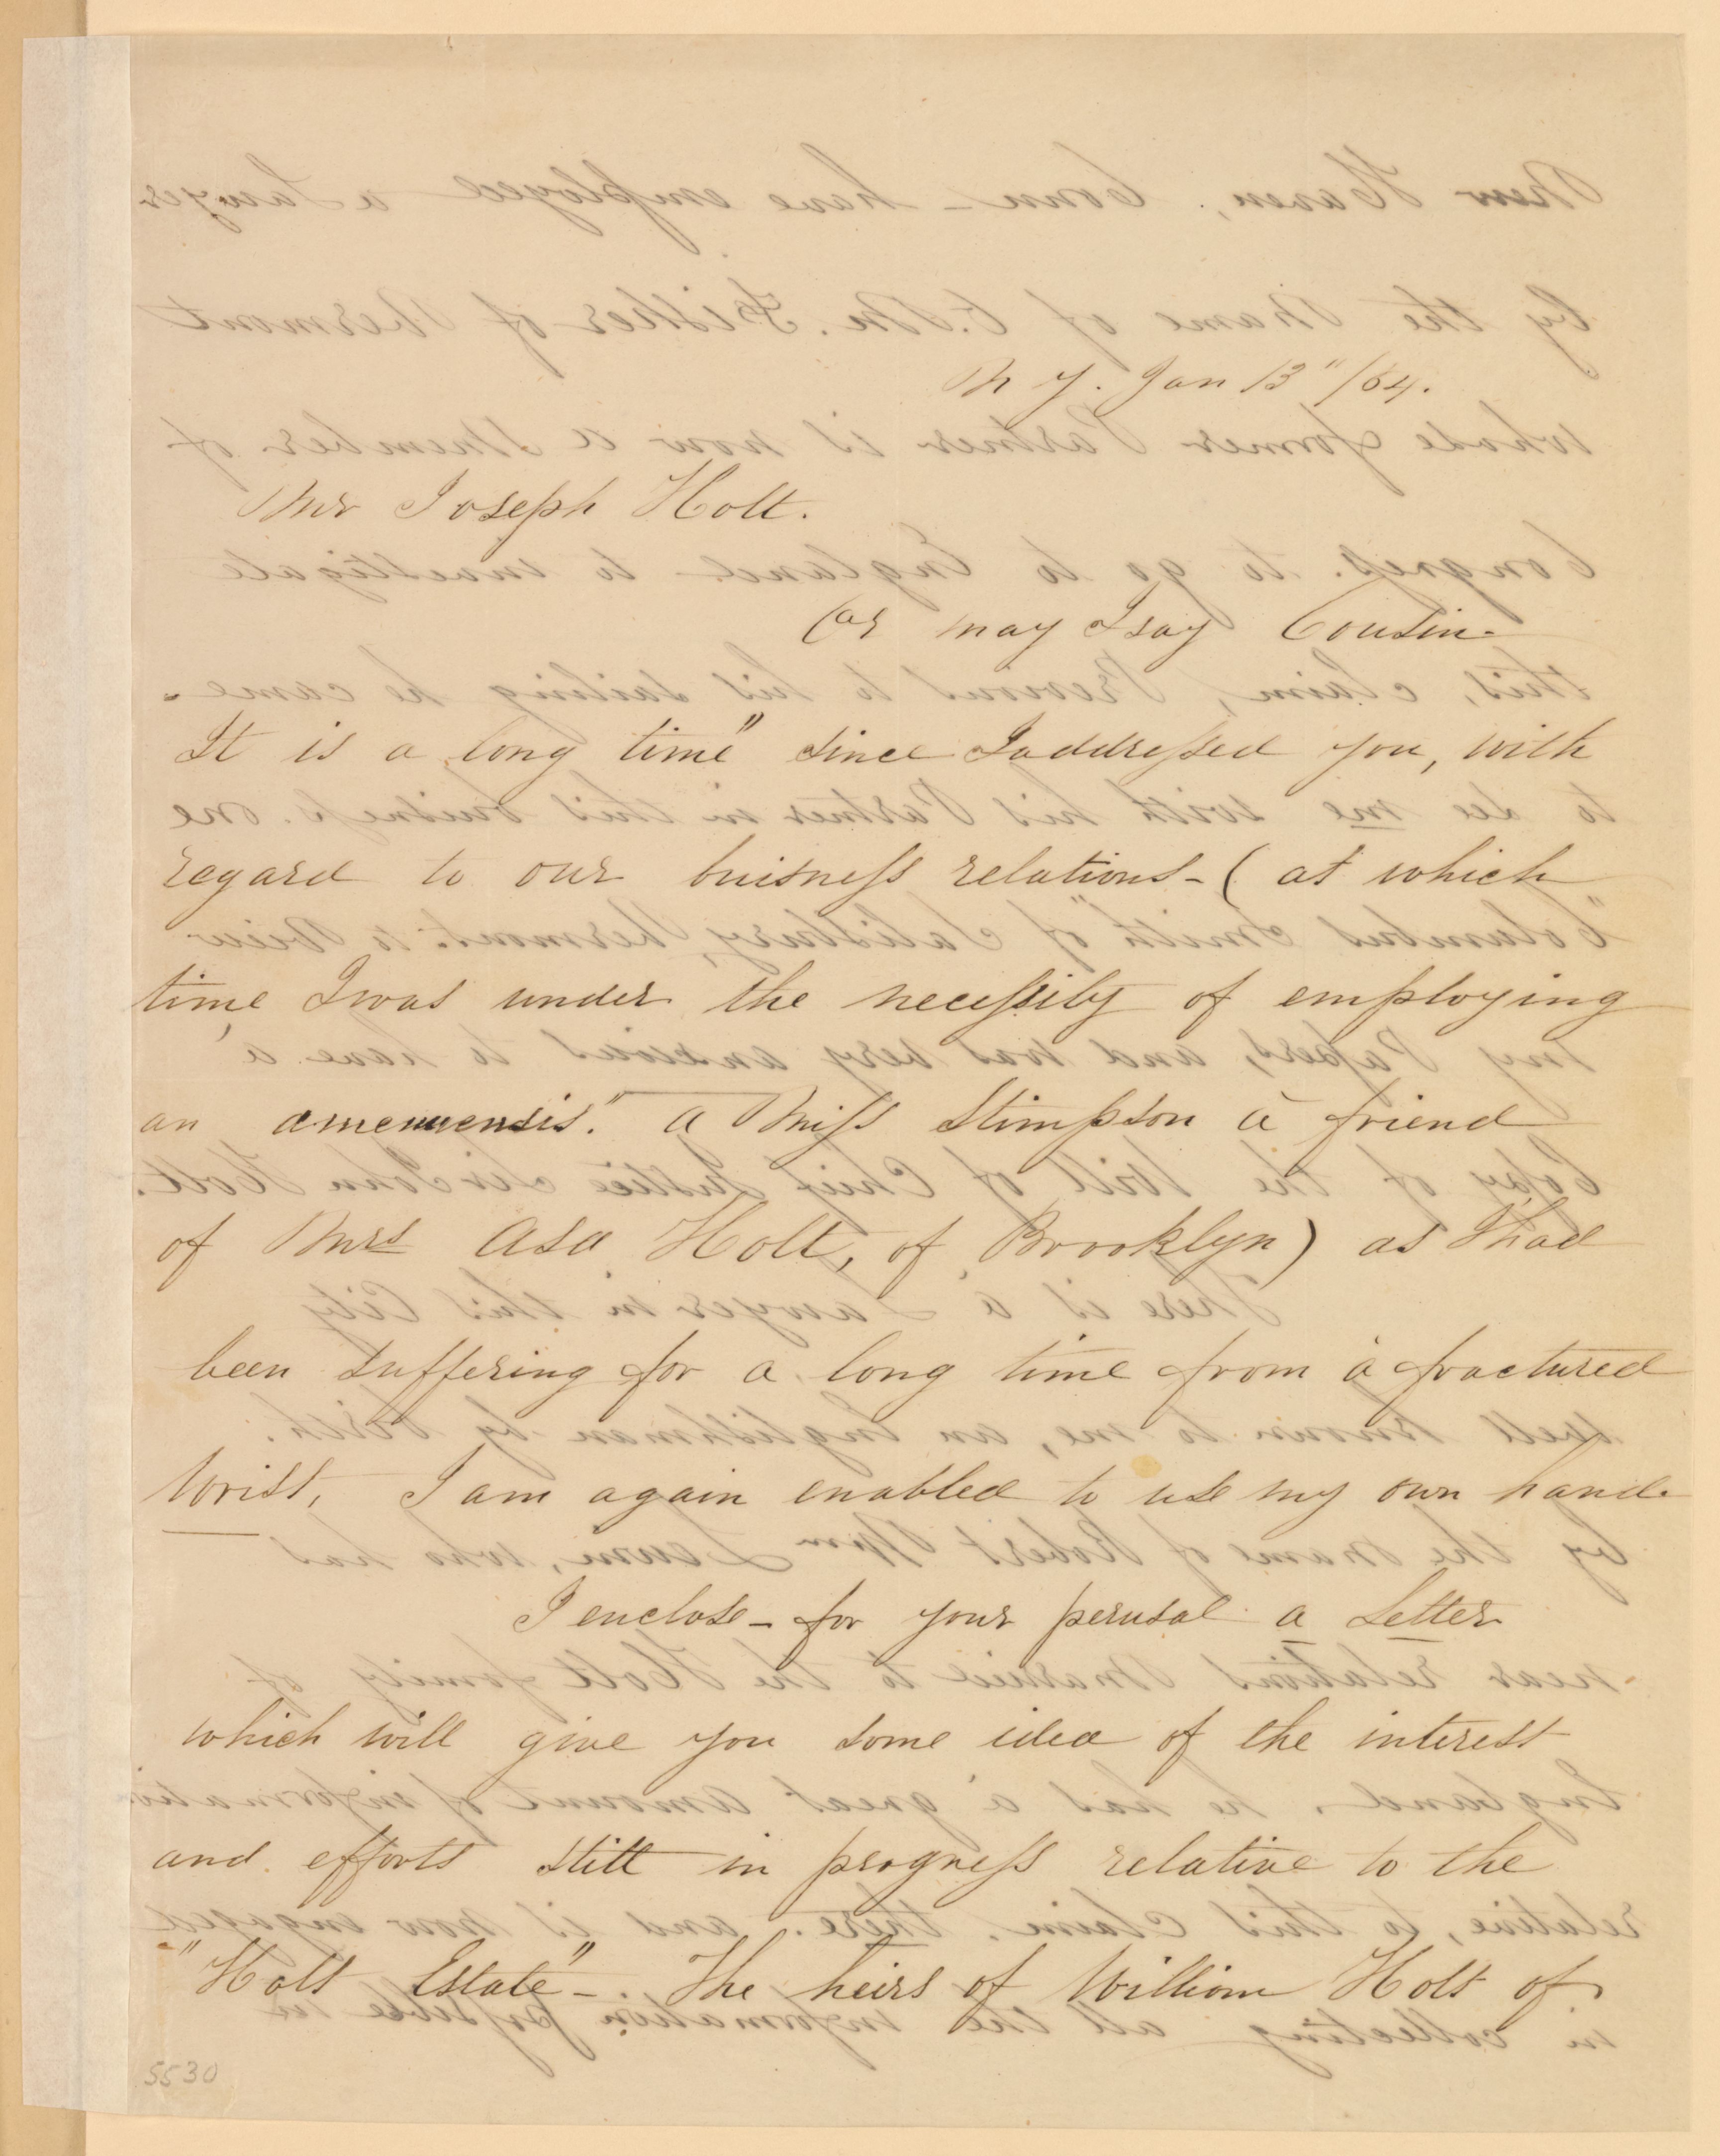 N Y. Jan 13"/64.
Mr Joseph Holt.
(or may I say Cousin.
It is a long time" since I addressed you, with
regard to our buisness relations - (at which
time I was under the necessity of employing
an amenuensis." a Miss Stimpson a friend
of Mrs Asa Holt, of Brooklyn) as I had
been suffering for a long time from a fractured
wrist, I am again enabled to use my own hand.
I enclose - for your perusal a Letter
which will give you some idea of the interest
and efforts still in progress relative to the
"Holt Estate" - The heirs of William Holt of
5530